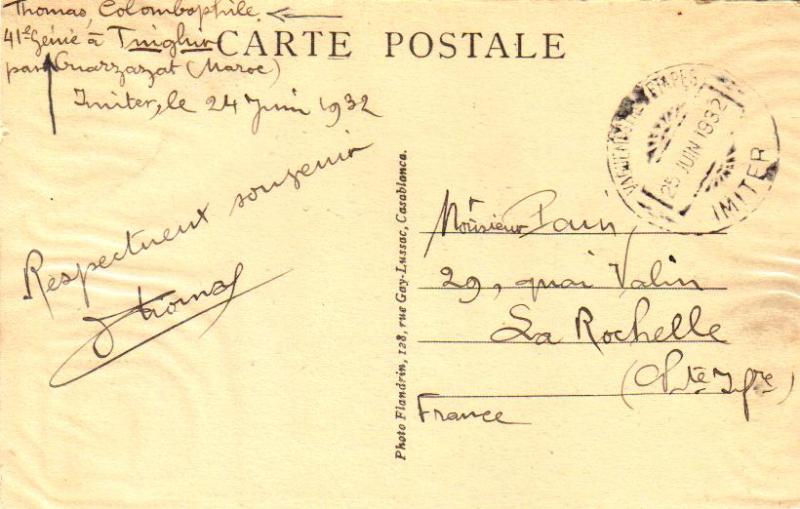 Thomas, Colombophile.
41e Génie à Tinghir
par Ouarzazat (Maroc)
Imiter, le 24 Juin 1932
CARTE POSTALE
VAGUEMESTRE ETAPES
25 JUIN 1932
IMITER
Respectueux souvenir
Thomas
Photo Flandrin, 128, rue Gay-Lussac, Casablanca.
Monsieur
29, quai Valin
La Rochelle
(Chte Infre)
France